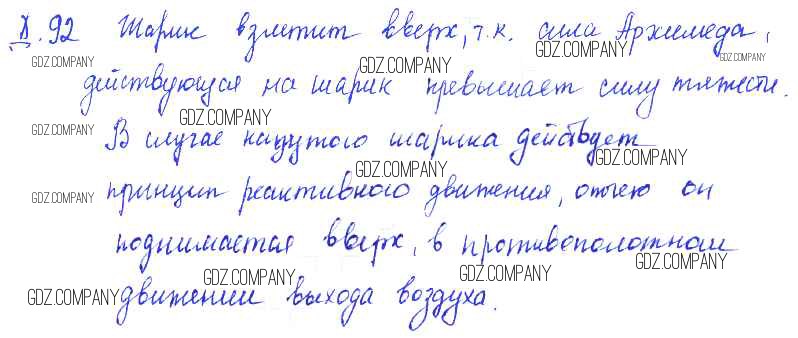 Д.92 Шарик взлетит вверх, т.к. сила Архимеда,
GDZ.COMPANY GDZ.COMPANY GDZ.COMPANY GDZ.COMPANY
действующая на шарик превышает силу тяжести.
GDZ.COMPANY GDZ.COMPANY
В случае надутого шарика действует
GDZ.COMPANY GDZ.COMPANY GDZ.COMPANY
принцип реактивного движения, отчего он
GDZ.COMPANY
поднимается вверх, в противоположном
GDZ.COMPANY GDZ.COMPANY GDZ.COMPANY
GDZ.COMPANY движении выхода воздуха.